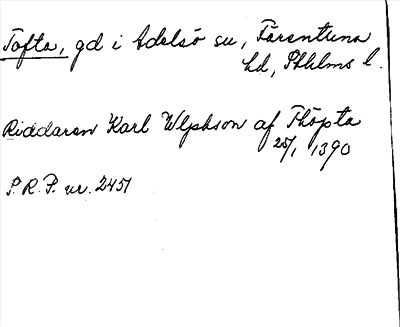 Tofta, gd i Adelsö su, Färentuna
hd, Sthlms l.
Riddaren Karl Wlphson af Thöpta
25/1 1390
P.R.P. nr. 2451